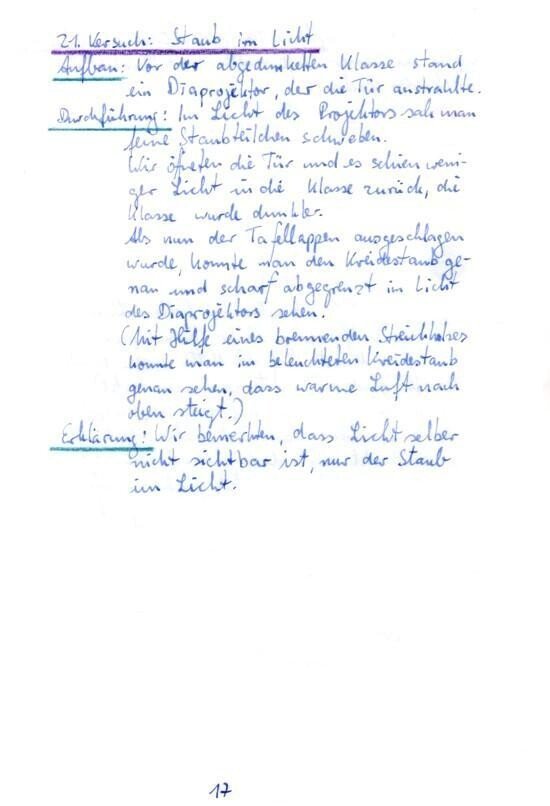 21. Versuch: Staub im Licht
Aufbau: Vor der abgedunkelten Klasse stand
ein Diaprojektor, der die Tür anstrahlte.
Durchführung: Im Licht des Projektors sah man
feine Staubteilchen schweben.
Wir öfneten die Tür und es schien weni-
ger Licht in die Klasse zurück, die
Klasse wurde dunkler.
Als nun der Tafellappen ausgeschlagen
wurde, konnte man den Kreidestaub ge-
nau und scharf abgegrenzt in Licht
des Diaprojektors sehen.
(Mit Hilfe eines brennenden Streichholzes
konnte man im beleuchteten Kreidestaub
genau sehen, dass warme Luft nach
oben steigt.)
Erklärung: Wir bemerkten, dass Licht selber
nicht sichtbar ist, nur der Staub
im Licht.
17